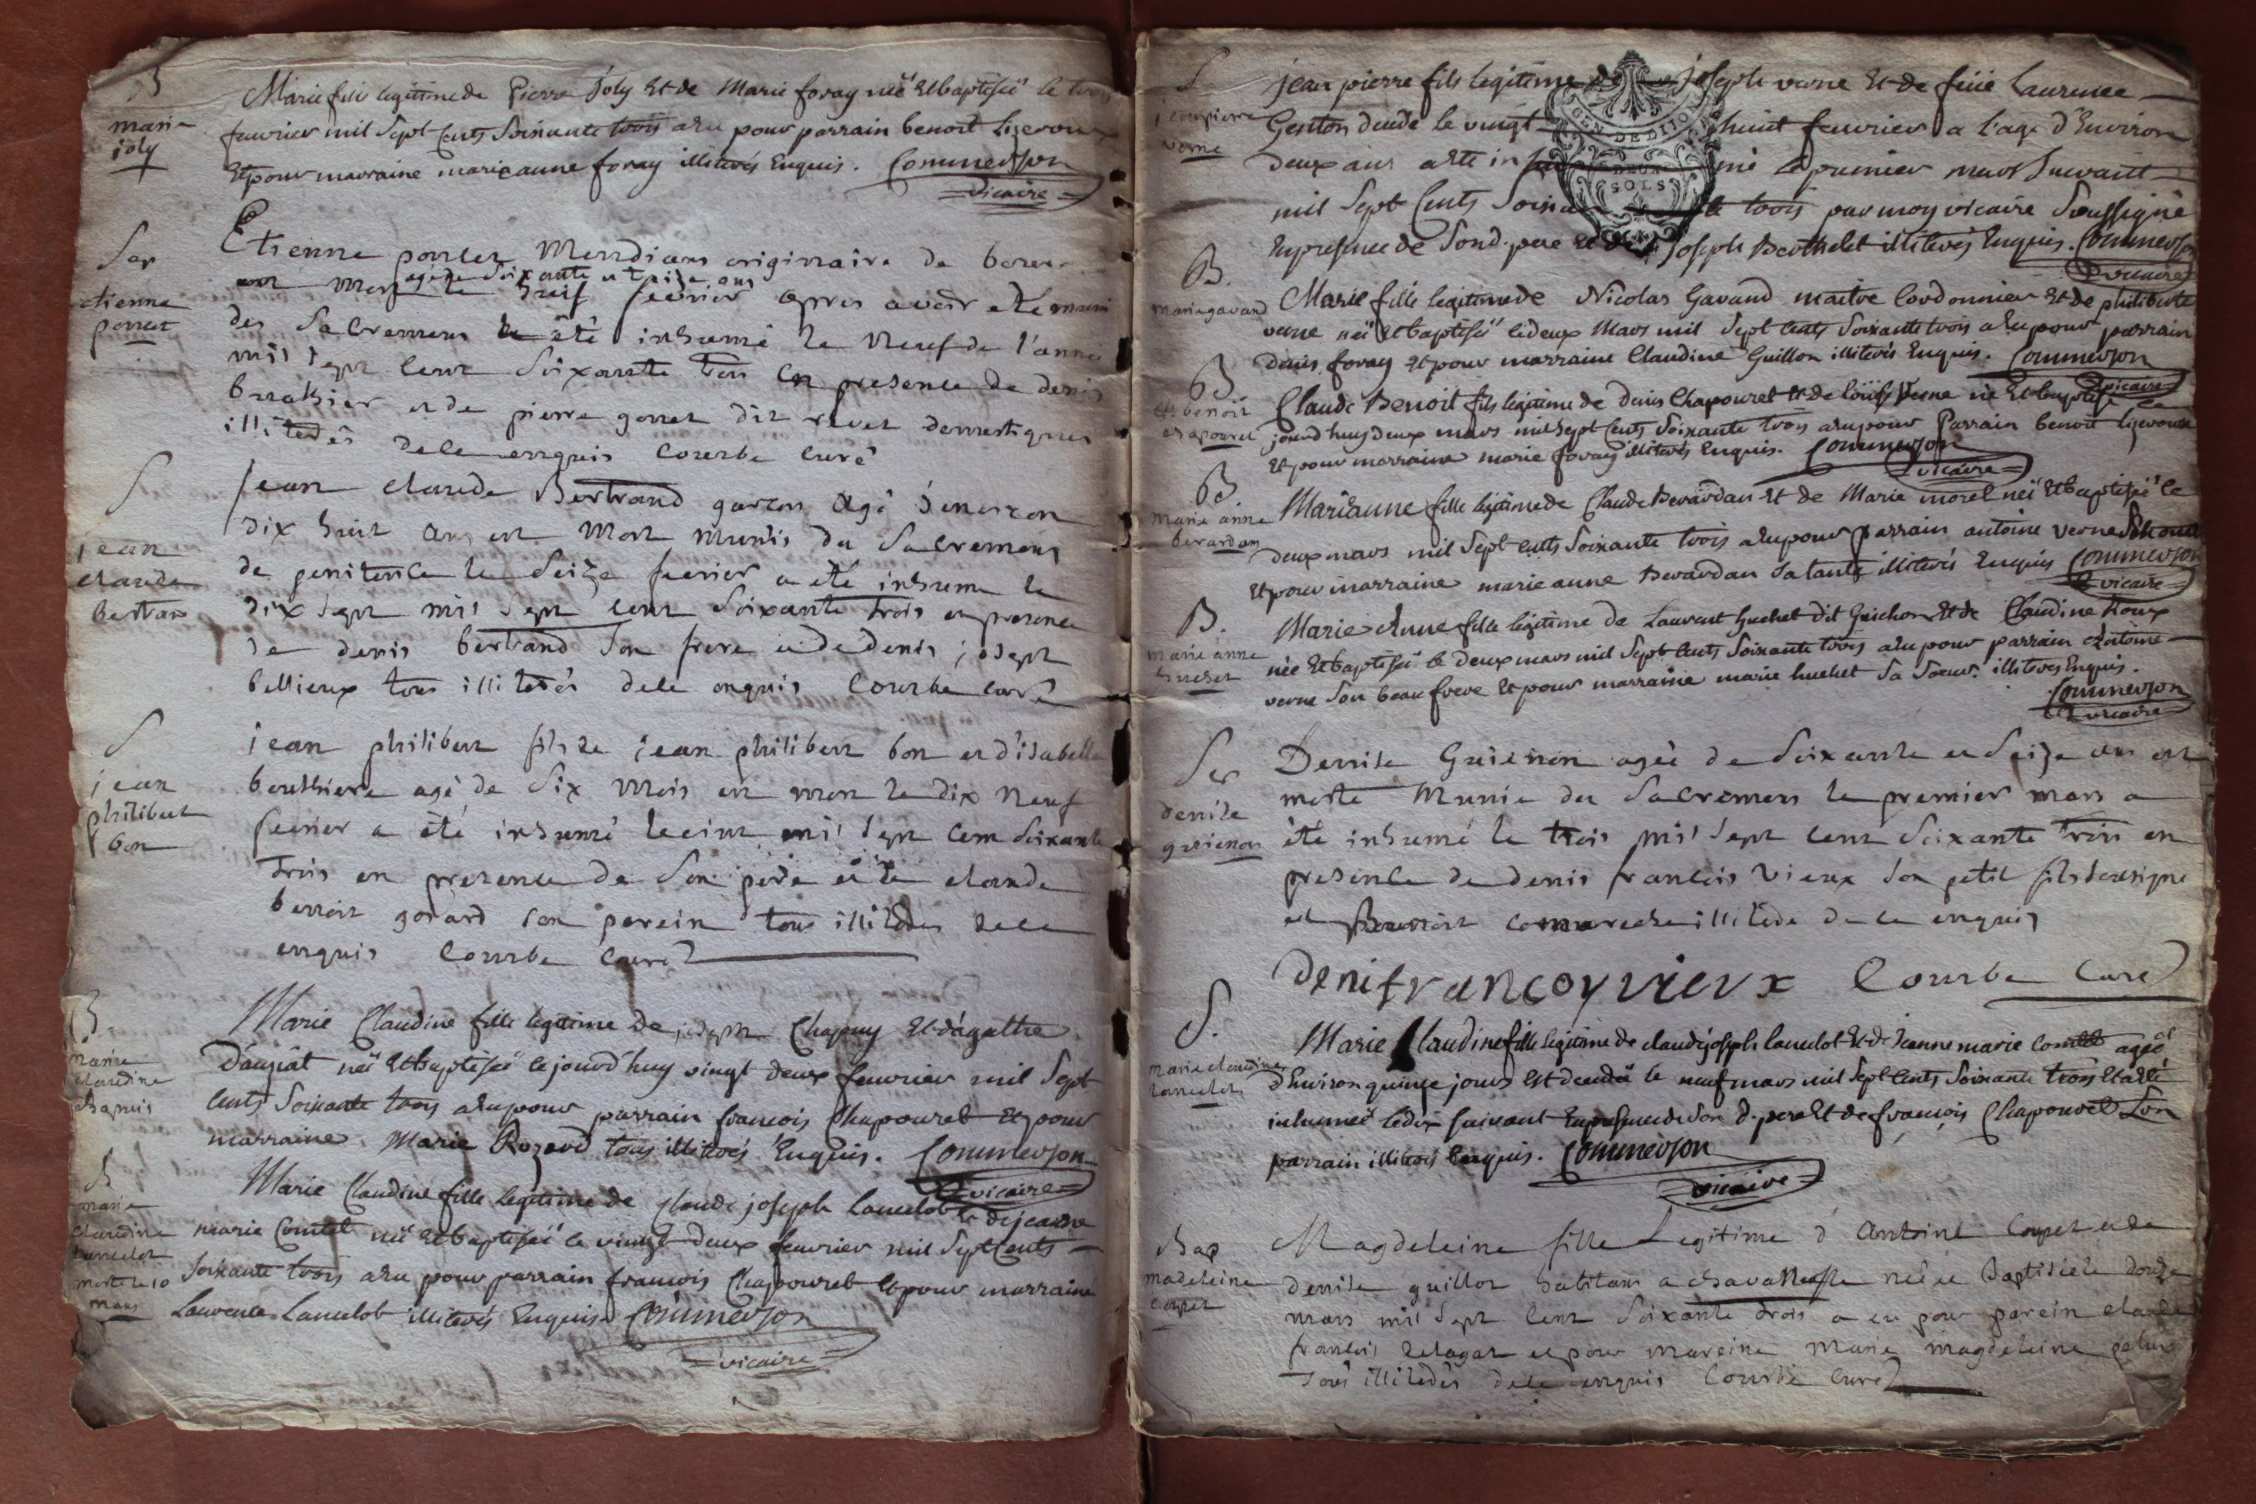 B
marie
joly
Marie fille legitime de Pierre Joly Et de Marie foray neë Et baptiseë le trois
feuvrier mil Sept Cents Soixante trois a eu pour parrain benoit
Et pour marraine marie anne foray illiterés Enquis. Commerson
vicaire
Sep
etienne
ponset
Etienne Mendians originaire de
agé de Soixante et Seize ans
est mort le huit fevrier apres avoir eté muni
des Sacremens a été inhumé le Neuf de l'anne
mil Sept Cent Soixante trois en presence de denis
et de pierre gonet dit revet domestiques
illiterés de ce enquis Courbe Curé
S
jean
claude
bertran
Jean claude Bertrand garcon agé d'environ
dix huit ans est Mort Munis du Sacrement
de penitence le Seize fevrier a été inhumé le
dix Sept mil Sept Cent Soixante trois en presence
de denis bertrand Son frere et de denis josept
bellieux tous illiterés de ce enquis Courbe Curé
S
jean
philibert
bon
jean philibert fils de jean philibert bon et d'isabelle
bouthiere agé de Six Mois est mort le dix Neuf
fevrier a été inhumé le vint mil Sept Cent Soixante
trois en presence de Son père et de claude
benoit gonard son parein tous illiterés de ce
enquis Courbe Curé
B.
marie
claudine
chapuis
Marie Claudine fille legitime de josept Chapuy Et d'agathe
Daujat neë Et baptiseë ce jourd'huy vingt deux feuvrier mil Sept
Cents Soixante trois a eu pour parrain francois Chapouret Et pour
marraine Marie Rozard tous illiterés Enquis. Commerson
vicaire
B
marie
claudine
lancelot
morte le 10
mars
Marie Claudine fille legitime de Claude joseph Lancelot Et de jeanne
marie Comtet neë Et baptiseë le vingt deux feuvrier mil Sept Cents
Soixante trois a eu pour parrain francois Chapouret Et pour marraine
Laurence Lancelot illiterés Enquis Commerson
vicaire
S
jean pierre
verne
jean pierre fils legitime de Joseph verne Et de feüe Laurence
Genton decede le vingt huit feuvrier a l'age d'Environ
deux ans a été inhumé le premier mars Suivant
mil Sept Cents Soixante trois par moy vicaire Soussigné
En presence de Son d. pere Et de Joseph Berthelet illiterés Enquis. Commerson
vicaire
GEN. DE DIJON
DEUX
SOLS
B.
marie gavand
Marie fille legitime de Nicolas Gavand maitre Cordonnier Et de philiberte
verne neë Et baptiseë le deux Mars mil Sept Cents Soixante trois a eu pour parrain
denis foray Et pour marraine Claudine Guillon illiterés Enquis. Commerson
vicaire
B.
cl. benoit
chapouret
Claude Benoit fils legitime de denis Chapouret Et de Loüise Verne né Et baptisé ce
jourd'huy deux mars mil Sept Cents Soixante trois a eu pour Parrain benoit
Et pour marraine marie foray illiterés Enquis. Commerson
vicaire
B.
marie anne
berardan
Marianne fille legitime de Claude Berardan Et de Marie morel neë Et baptiseë le
deux mars mil Sept Cents Soixante trois a eu pour parrain antoine verne
Et pour marraine marie anne Berardan Sa tante illiterés Enquis Commerson
vicaire
B.
marie anne
huchet
Marie Anne fille legitime de Laurent huchet dit Guichon Et de Claudine Roux
neë Et baptiseë le deux mars mil Sept Cents Soixante trois a eu pour parrain Antoine
verne Son beau frere Et pour marraine marie huchet Sa Soeur. illiterés Enquis.
Commerson
vicaire
Sep
denise
guienon
Denise Guienon ageé de Soixante et Seize ans est
morte Munie du Sacremens le premier mars a
été inhumé le trois mil Sept Cent Soixante trois en
presence de denis francois Vieux Son petit fils sousigne
et Benoit illiteré de ce enquis
Deni francoy vieux Courbe Curé
S.
marie claudine
lancelot
Marie Claudine fille legitime de claude joseph lancelot Et de Jeanne marie Comtet ageé
d'Environ quinze jours Est decedeë le neuf mars mil Sept Cents Soixante trois Et a été
inhumeë le dix Suivant En presence de Son d. pere Et de francois Chapouret Son
parrain illiterés Enquis. Commerson
vicaire
Bap
madeleine
coupet
Magdeleine fille Legitime d'Antoine Coupet et de
denise guillot habitans a neé et Baptisée le douze
mars mil Sept Cent Soixante trois a eu pour parein claude
francois delagat et pour mareine Marie magdeleine
tous illiterés de ce enquis Courbe Curé